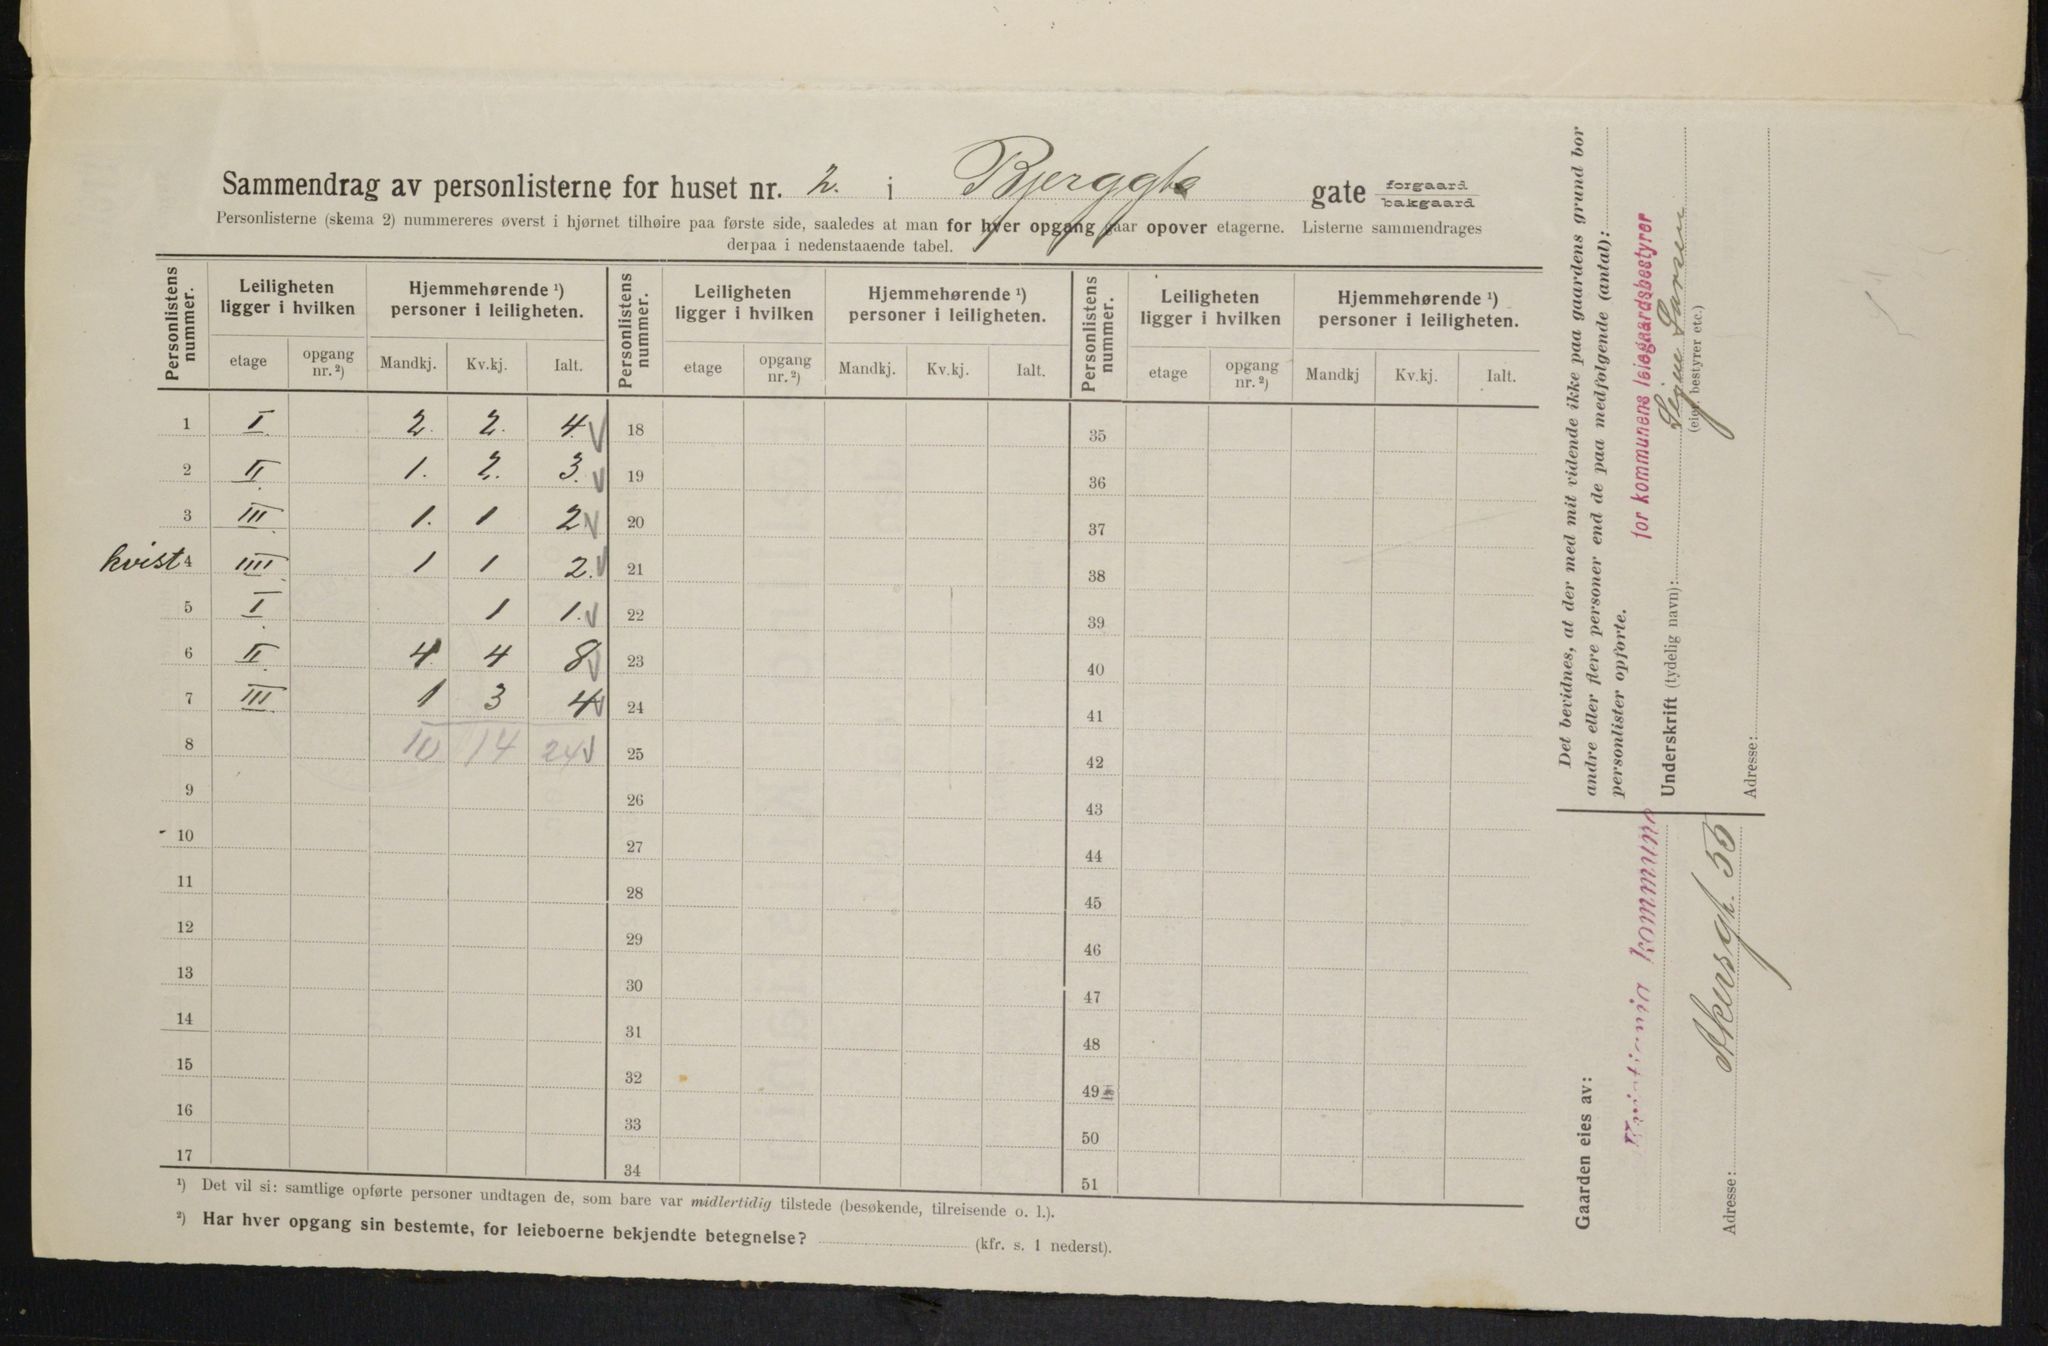 Sammendrag av personlisterne for huset nr. 2. i Bjerggt gate forgaard bakgaard
Personlisterne (skema 2) nummereres øverst i hjørnet tilhøire paa første side, saaledes at man for hver opgang gaar opover etagerne. Listerne sammendrages
derpaa i nedenstaaende tabel.
Personlistens nummer. Leiligheten ligger i hvilken Hjemmehørende ¹) personer i leiligheten. Personlistens nummer. Leiligheten ligger i hvilken Hjemmehørende ¹) personer i leiligheten. Personlistens nummer. Leiligheten ligger i hvilken Hjemmehørende ¹) personer i leiligheten.
etage opgang nr. ²) Mandkj. Kv.kj. Ialt. etage opgang nr. ²) Mandkj. Kv.kj. Ialt. etage opgang nr. ²) Mandkj Kv.kj. Ialt.
1 I 2. 2. 4. 18 35
2 II 1. 2. 3. 19 36
3 III 1. 1 2 20 37
kvist 4 IIII 1 1 2. 21 38
5 I 1 1. 22 39
6 II 4 4 8 23 40
7 III 1 3 4 24 41
8 10 14 24 25 42
9 26 43
10 27 44
11 28 45
12 29 46
13 30 47
14 31 48
15 32 49
16 33 50
17 34 51
¹) Det vil si: samtlige opførte personer undtagen de, som bare var midlertidig tilstede (besøkende, tilreisende o. l.).
²) Har hver opgang sin bestemte, for leieboerne bekjendte betegnelse? (kfr. s. 1 nederst).
Det bevidnes, at der med mit vidende ikke paa gaardens grund bor
andre eller flere personer end de paa medfølgende (antal):
personlister opførte.
for kommunens leiegaardsbestyrer
Underskrift (tydelig navn): Signe Larsen
(eier, bestyrer etc.)
Adresse:
Gaarden eies av:
Kristiania kommune
Adresse: Akersgt. 55